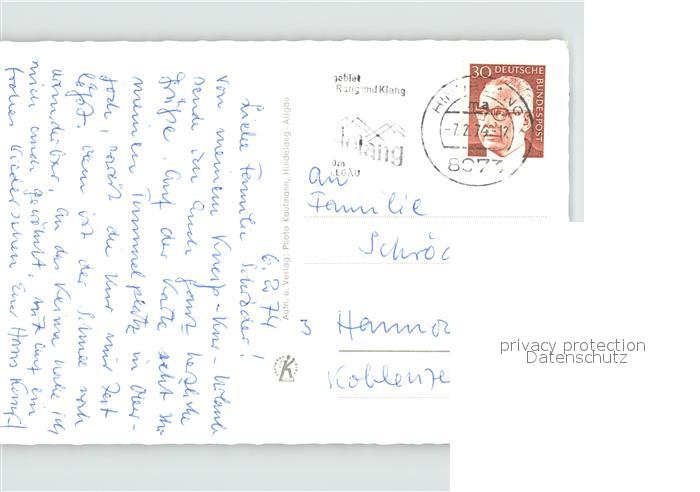 6.2.74
Liebe Familie Schröder!
Von meinem Kneipp-Kur-Urlaub
sende ich Euch ganz herzliche
Grüße. Auf der Karte seht Ihr
meinen Tummelplatz in Ober-
joch, soweit die Kur mir Zeit
läßt. Denn ist der Schnee noch
wunderbar, an das Klima habe ich
mich auch gewöhnt. auf ein
frohes Wiedersehen Euer Hans
Aufn. u. Verlag: Photo Kaufmann, Hindelang - Allgäu
gebiet
Rang und Klang
delang
im
LGÄU
-7.2.74-12
8973
30 DEUTSCHE
BUNDESPOST
An
Familie
Schröd
3 Hannov
Koblenze
privacy protection
Datenschutz